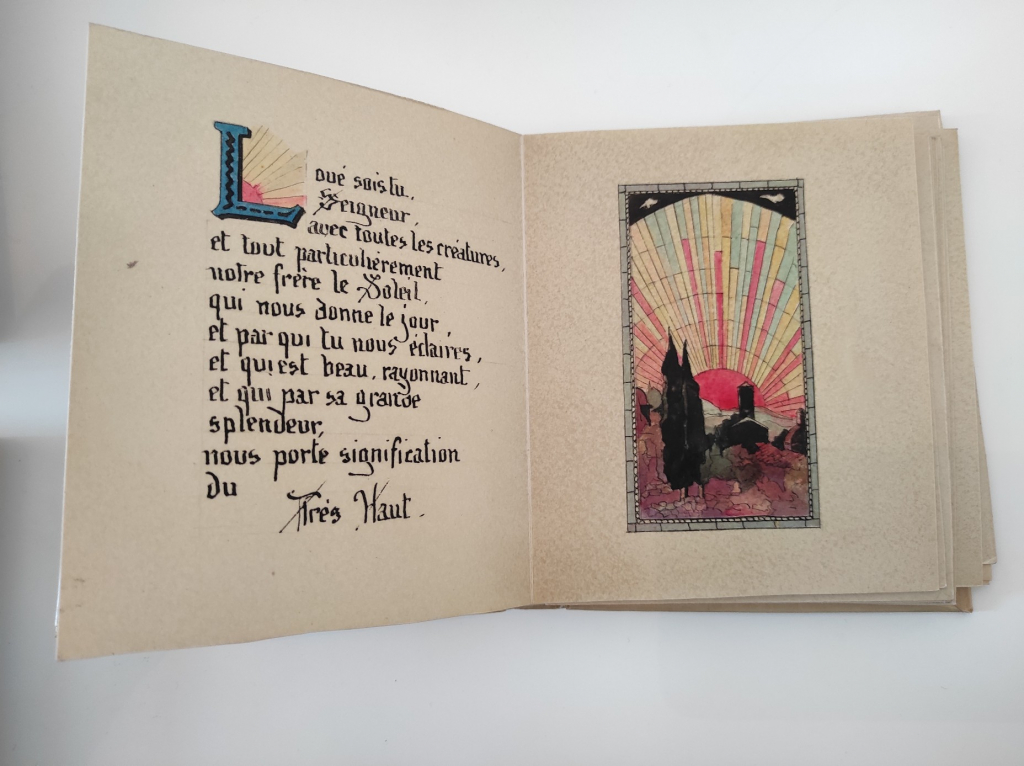 Loué sois tu,
Seigneur,
avec toutes les créatures,
et tout particulièrement
notre frère le Soleil,
qui nous donne le jour,
et par qui tu nous éclaires,
et qui est beau, rayonnant,
et qui par sa grande
splendeur,
nous porte signification
du
Très Haut.